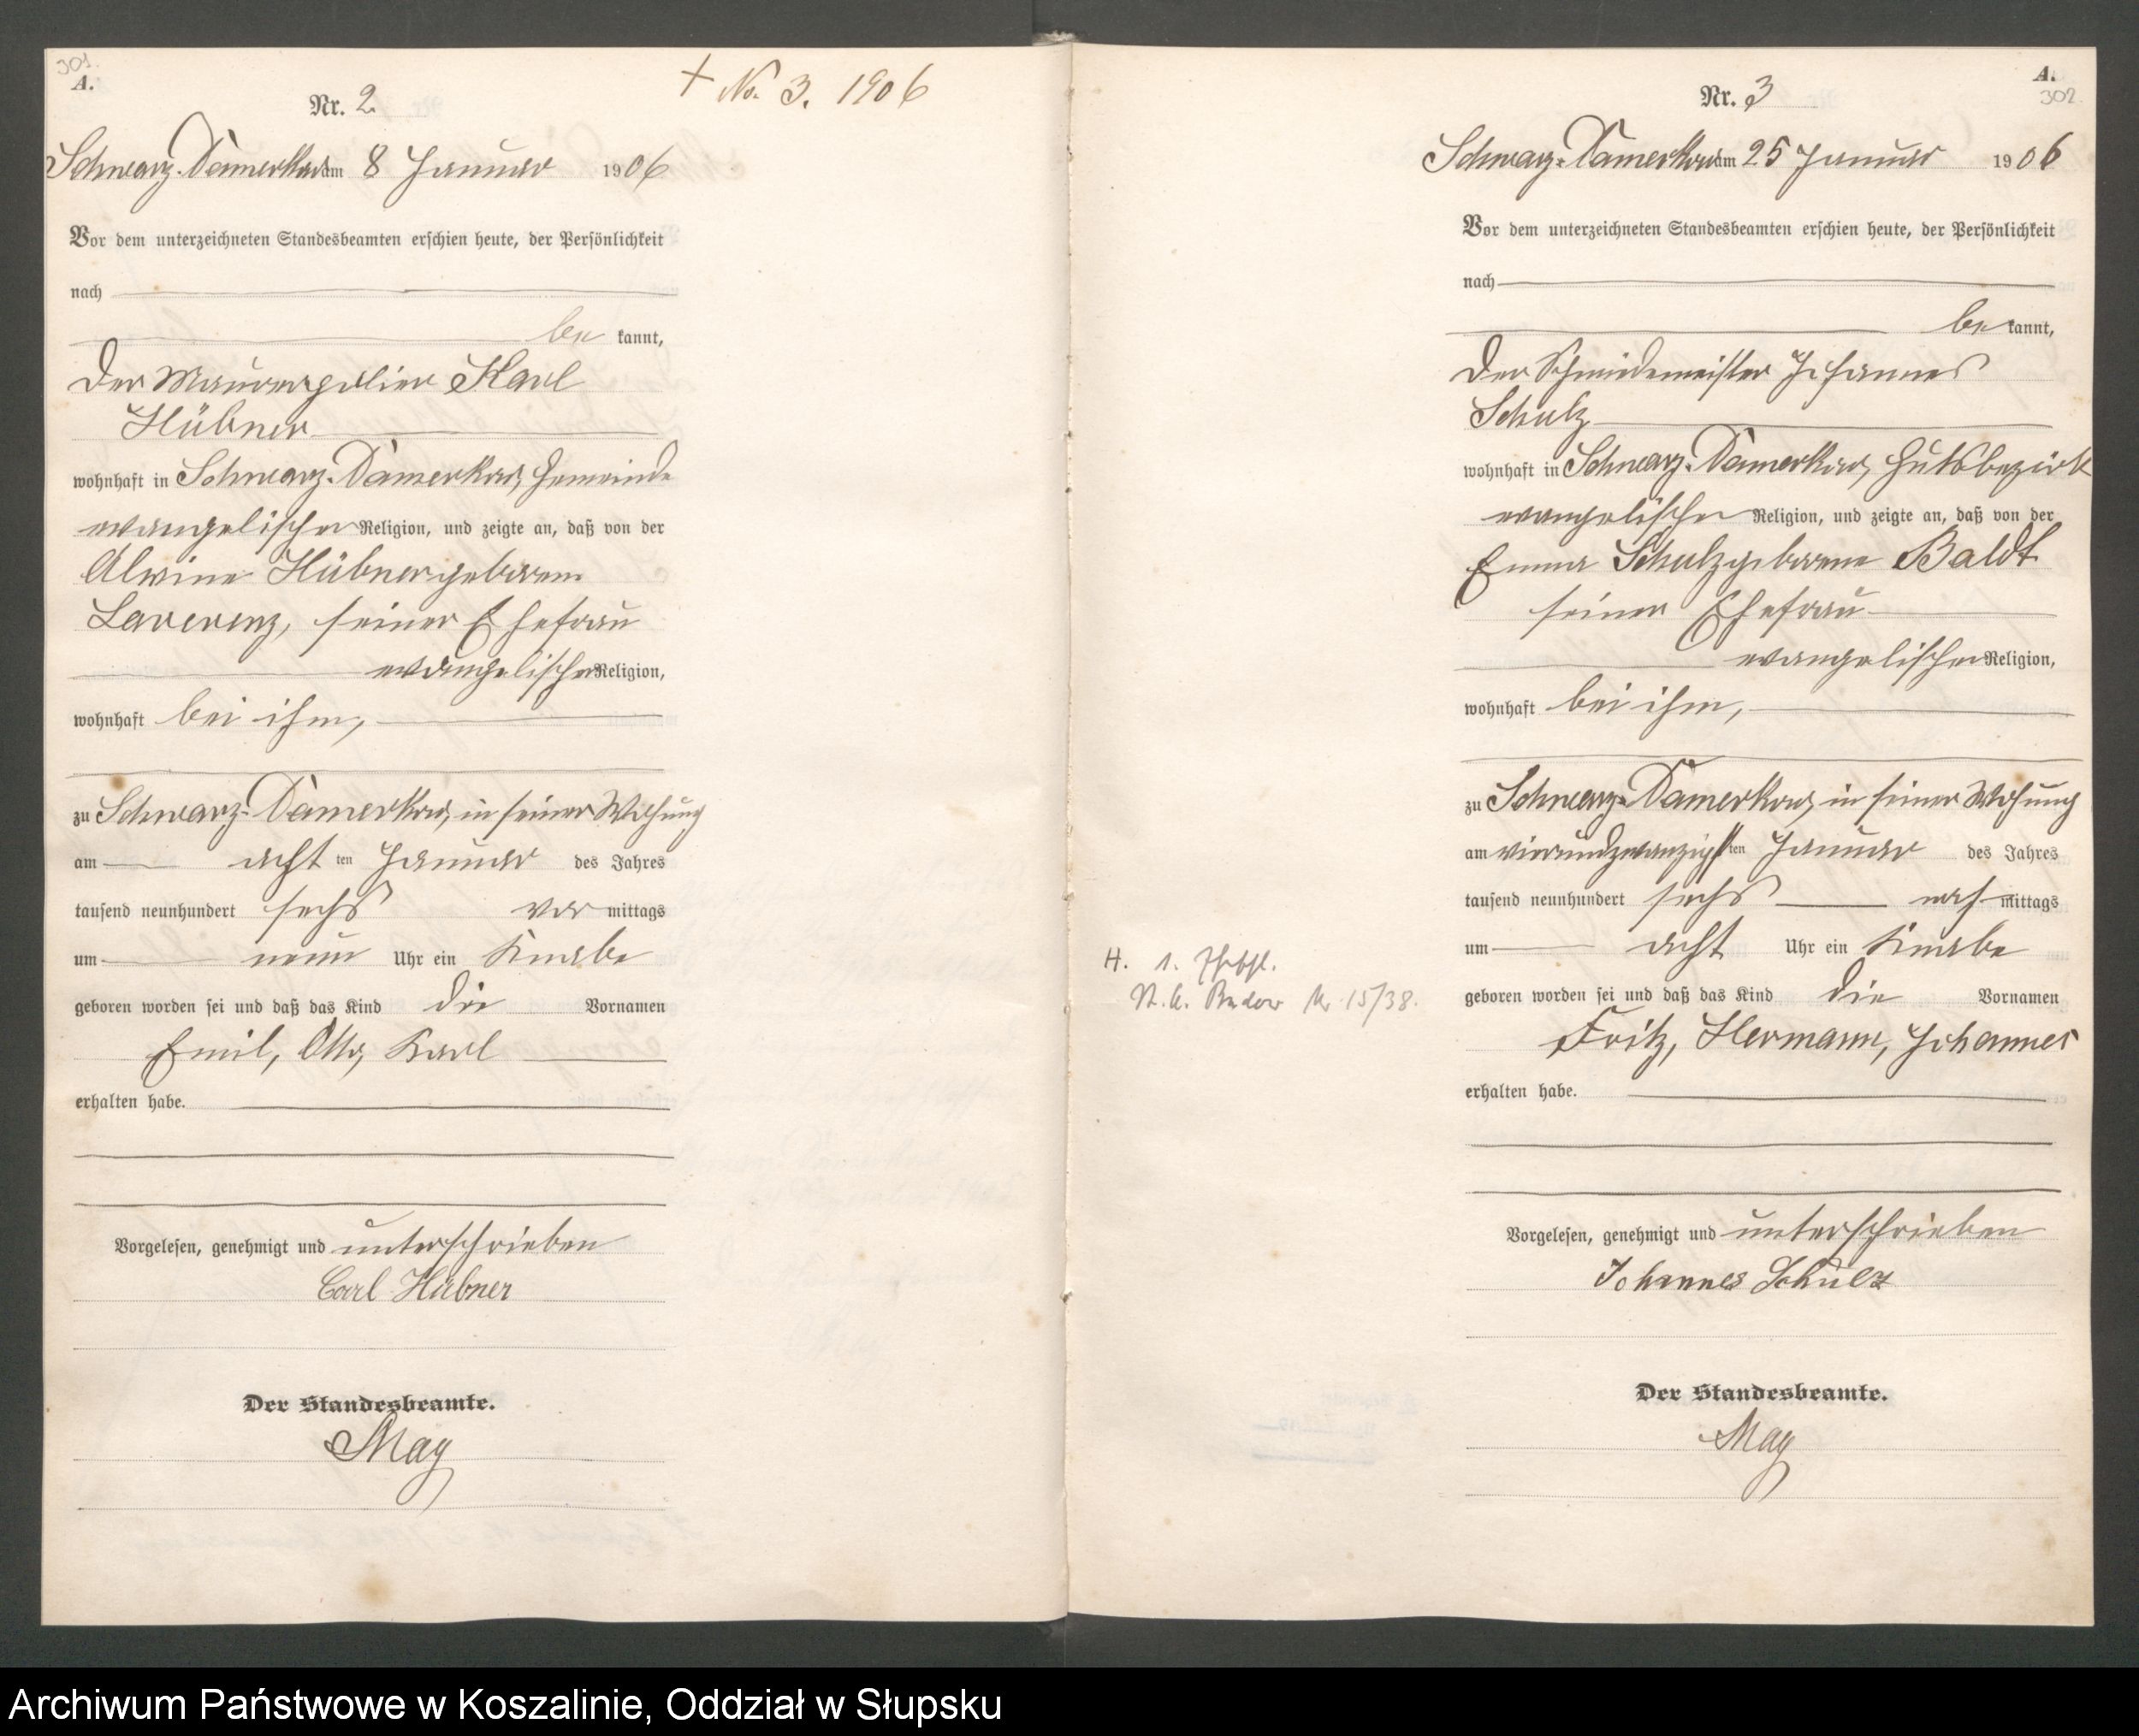 301.
A.
Nr. 2
+ No. 3. 1906
Schwarz-Damerkow am 8 Januar 1906
Vor dem unterzeichneten Standesbeamten erschien heute, der Persönlichkeit
nach
be kannt,
der Maurerpolier Karl
Hübner
wohnhaft in Schwarz-Damerkow, Gemeinde
evangelischer Religion, und zeigte an, daß von der
Alwine Hübner geborene
Laverenz, seiner Ehefrau
evangelischer Religion,
wohnhaft bei ihm,
zu Schwarz-Damerkow, in seiner Wohung
am acht ten Januar des Jahres
tausend neunhundert sechs vor mittags
um neun Uhr ein Knabe
geboren worden sei und daß das Kind die Vornamen
Emil, Otto, Karl
erhalten habe.
Vorgelesen, genehmigt und unterschrieben
Carl Hübner
Der Standesbeamte.
May
A.
302.
Nr. 3
Schwarz-Damerkow am 25 Januar 1906
Vor dem unterzeichneten Standesbeamten erschien heute, der Persönlichkeit
nach
be kannt,
der Schmiedemeister Johannes
Schulz
wohnhaft in Schwarz-Damerkow, Gutsbezirk
evangelischer Religion, und zeigte an, daß von der
Emma Schulz geborene Baldt
seiner Ehefrau
evangelischer Religion,
wohnhaft bei ihm,
zu Schwarz-Damerkow, in seiner Wohung
am vierundzwanzigsten Januar des Jahres
tausend neunhundert sechs nach mittags
um acht Uhr ein Knabe
geboren worden sei und daß das Kind die Vornamen
H. 1.
St. A. Budow Nr. 15/38.
Fritz, Hermann, Johannes
erhalten habe.
Vorgelesen, genehmigt und unterschrieben
Johannes Schulz
Der Standesbeamte.
May
Archiwum Państwowe w Koszalinie, Oddział w Słupsku